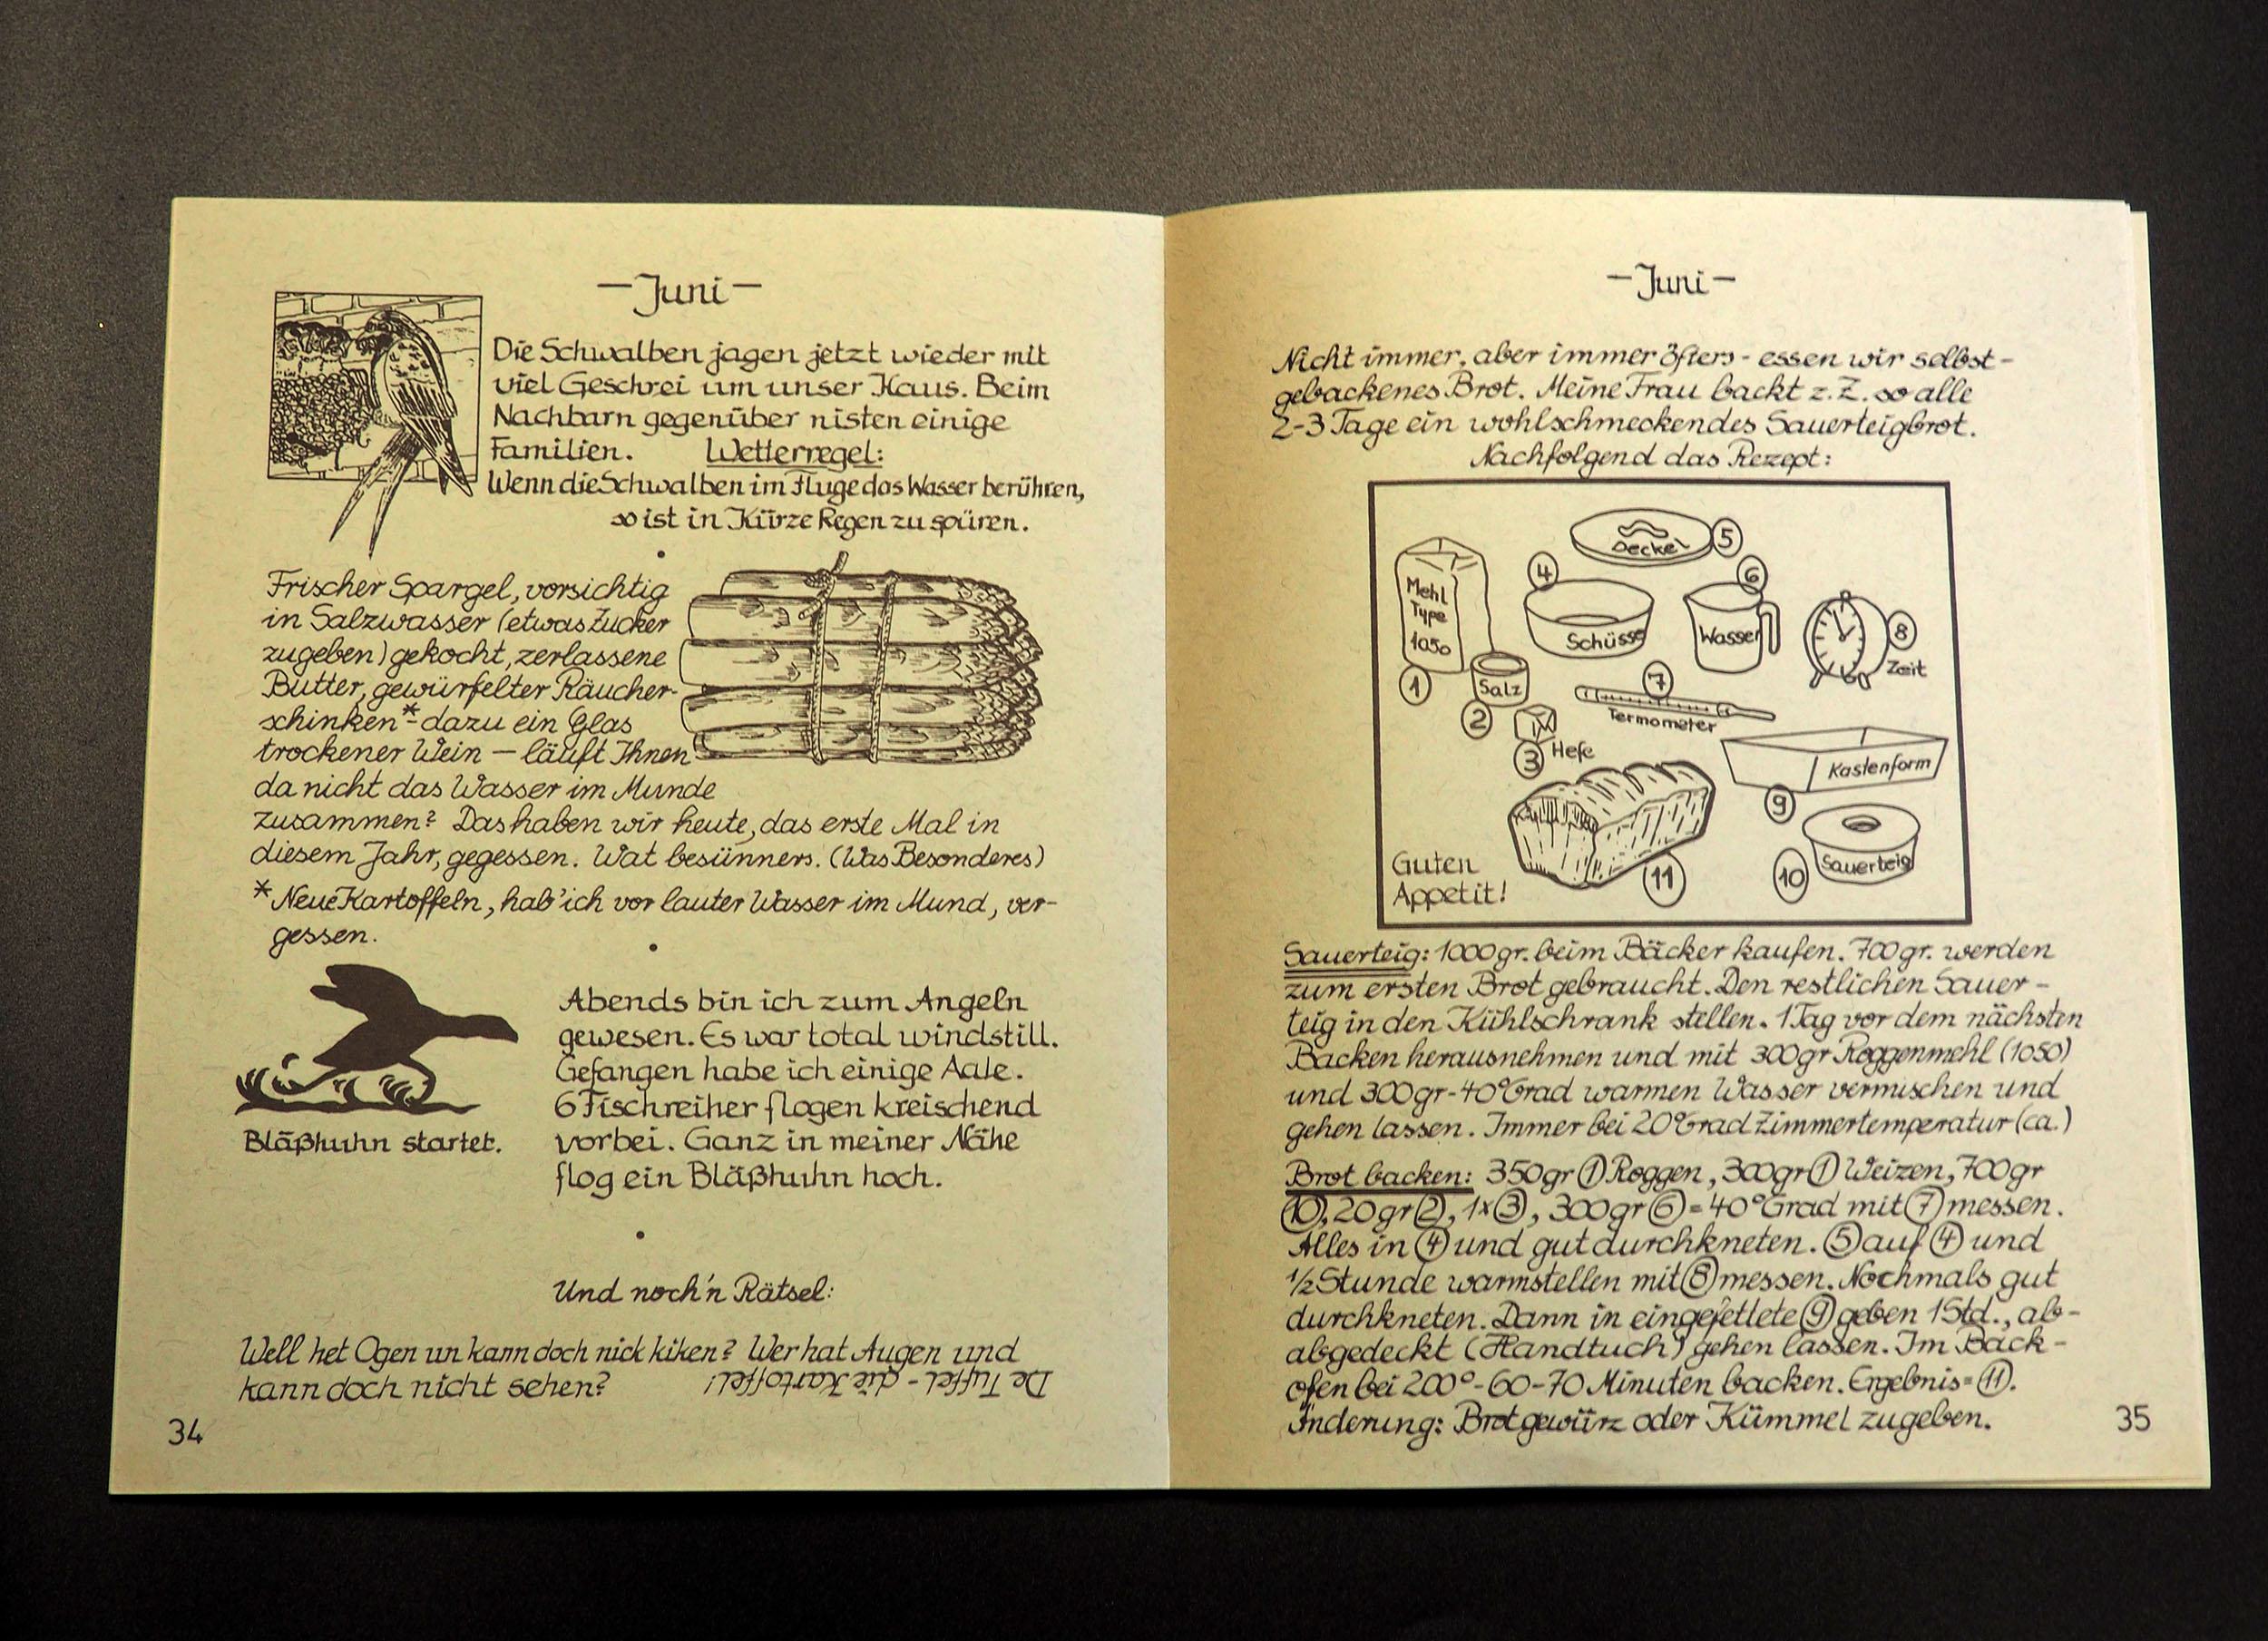 —Juni—
Die Schwalben jagen jetzt wieder mit
viel Geschrei um unser Haus. Beim
Nachbarn gegenüber nisten einige
Familien. Wetterregel:
Wenn die Schwalben im Fluge das Wasser berühren,
so ist in Kürze Regen zu spüren.
Frischer Spargel, vorsichtig
in Salzwasser (etwas Zucker
zugeben) gekocht, zerlassene
Butter, gewürfelter Räucher-
schinken*- dazu ein Glas
trockener Wein — läuft Ihnen
da nicht das Wasser im Munde
zusammen? Das haben wir heute, das erste Mal in
diesem Jahr, gegessen. Wat besünners. (Was Besonderes)
* Neue Kartoffeln, hab' ich vor lauter Wasser im Mund, ver-
gessen.
Bläßhuhn startet.
Abends bin ich zum Angeln
gewesen. Es war total windstill.
Gefangen habe ich einige Aale.
6 Fischreiher flogen kreischend
vorbei. Ganz in meiner Nähe
flog ein Bläßhuhn hoch.
Und noch'n Rätsel:
Well het Ogen un kann doch nick kiken? Wer hat Augen und
kann doch nicht sehen?
De Tuffel - die Kartoffel!
34
—Juni—
Nicht immer, aber immer öfters - essen wir selbst-
gebackenes Brot. Meine Frau backt z.Z. so alle
2-3 Tage ein wohlschmeckendes Sauerteigbrot.
Nachfolgend das Rezept:
Deckel 5
4
6
Mehl
Type
1050
Schüssel
Wasser
8
Zeit
1
Salz
2
7
Termometer
3 Hefe
Kastenform
9
Guten
Appetit!
11
10
Sauerteig
Sauerteig: 1000gr. beim Bäcker kaufen. 700gr. werden
zum ersten Brot gebraucht. Den restlichen Sauer-
teig in den Kühlschrank stellen. 1 Tag vor dem nächsten
Backen herausnehmen und mit 300gr Roggenmehl (1050)
und 300gr-40°Grad warmen Wasser vermischen und
gehen lassen. Immer bei 20°Grad Zimmertemperatur (ca.)
Brot backen: 350gr ① Roggen, 300gr ① Weizen, 700gr
⑩, 20gr ②, 1x ③, 300gr ⑥ = 40°Grad mit ⑦ messen.
Alles in ④ und gut durchkneten. ⑤ auf ④ und
½ Stunde warmstellen mit ⑧ messen. Nochmals gut
durchkneten. Dann in eingefettete ⑨ geben 1 Std., ab-
abgedeckt (Handtuch) gehen lassen. Im Back-
ofen bei 200°-60-70 Minuten backen. Ergebnis = ⑪.
Änderung: Brotgewürz oder Kümmel zugeben.
35